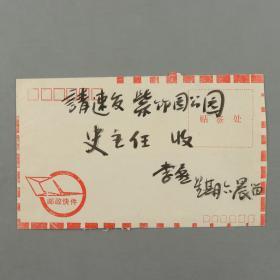 請速交紫竹园公园
贴票处
史主任 收
李
星期六晨
邮政快件